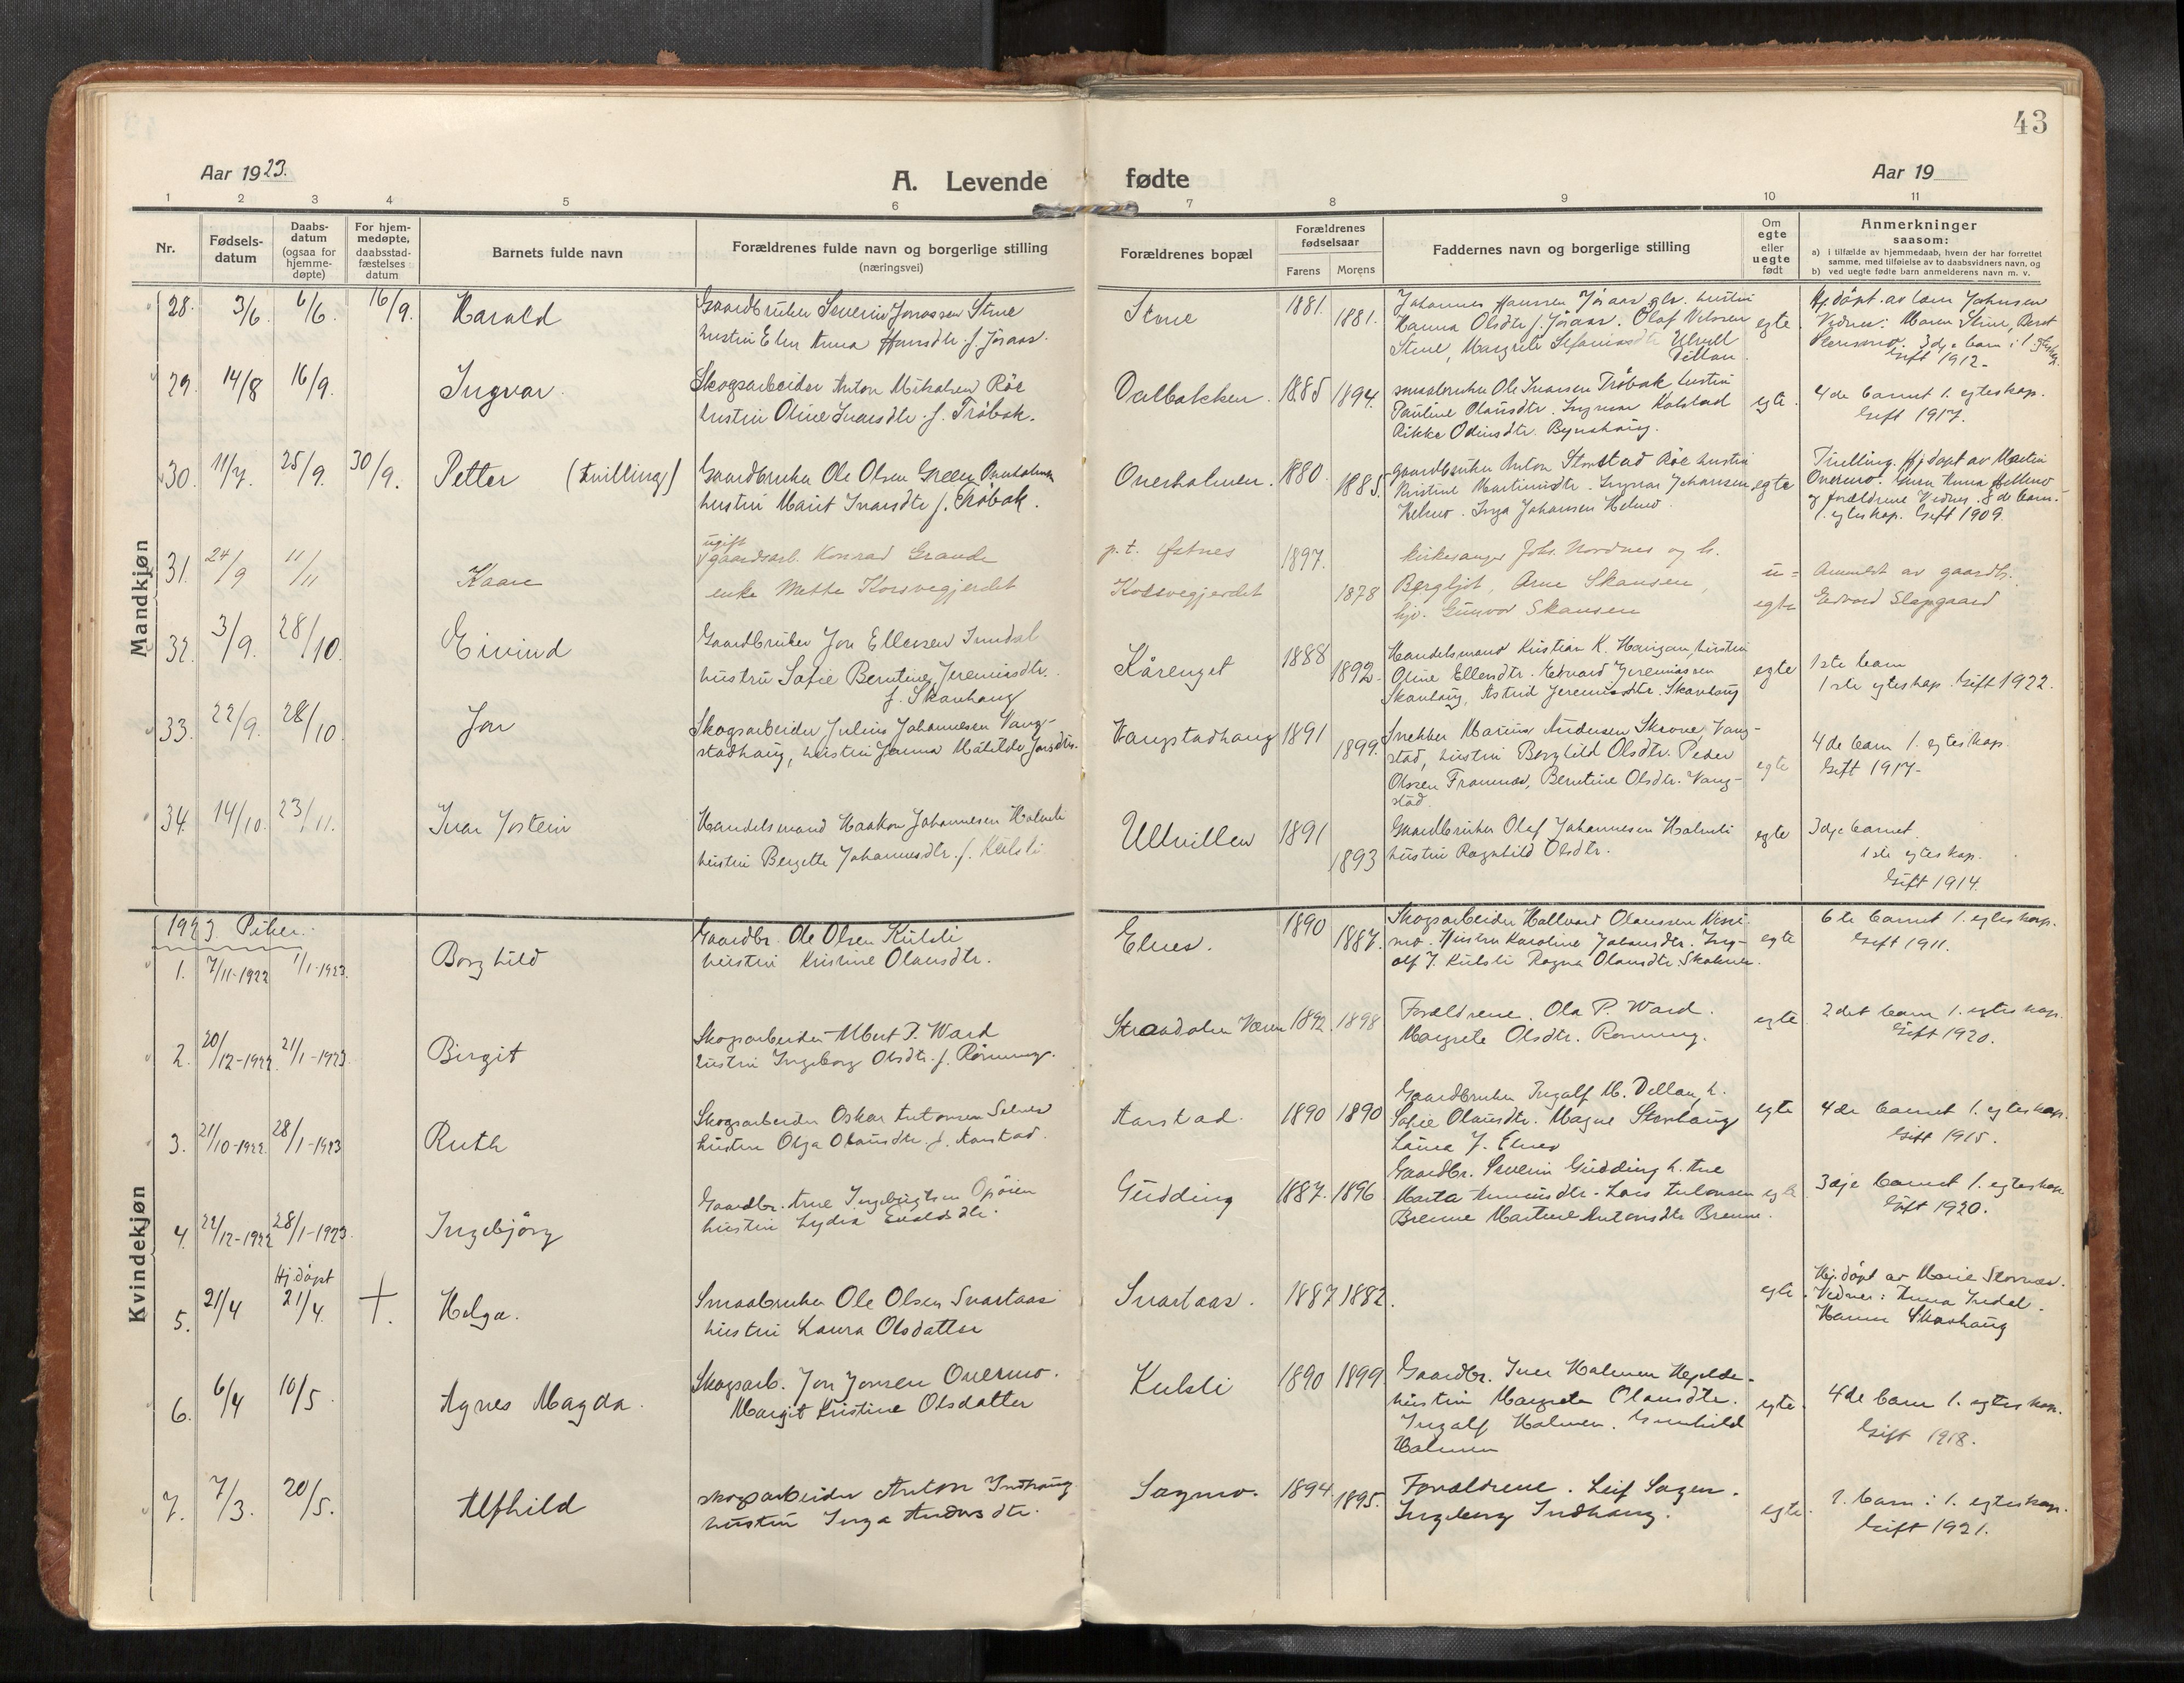 43
Aar 1923.
A. Levende fødte
Aar 19
1 2 3 4 5 6 7 8 9 10 11
Nr.
Fødsels-
datum
Daabs-
datum
(ogsaa for
hjemme-
døpte)
For hjem-
medøpte,
daabsstad-
fæstelses
datum
Barnets fulde navn
Forældrenes fulde navn og borgerlige stilling
(næringsvei)
Forældrenes bopæl
Forældrenes
fødselsaar
Farens Morens
Faddernes navn og borgerlige stilling
Om
egte
eller
uegte
født
Anmerkninger
saasom:
a) i tilfælde av hjemmedaab, hvem der har forrettet
samme, med tilføielse av to daabsvidners navn, og
b) ved uegte fødte barn anmelderens navn m. v.
Mandkjøn
28. 3/6. 6/6. 16/9. Harald
Gaardbruker Severin Jonassen Stene
hustru Elen Anna Hansdtr. f. Jøraas.
Stene 1881. 1881.
Johannes Hanssen Jøraas hustru
Hanna Olsdtr f. Jøraas. Olaf
Stene, Margrete
Dellan
egte.
Hj.døpt av
Vidner: Maren Stene,
3dje barn i 1.
Gift 1912.
29. 14/8 16/9. Ingvar.
Skogsarbeider Anton Mikalsen Røe
hustru Oline Ivarsdtr. f. Trøbak.
Dalbakken. 1885 1894.
smaabruker Ole Ivarsen Trøbak hustru
Pauline Olausdtr. Ingvar Kolstad
Rikke Odinsdtr. Bynshaug.
egte.
4de barnet 1. egteskap.
Gift 1917.
30. 11/7. 25/9. 30/9. Petter (tvilling)
Gaardbruker Ole Olsen Green Overholmen
hustru Marit Ivarsdtr f. Trøbak.
Overholmen. 1880. 1885.
gaardbruker Anton Røe hustru
Kristine Martinsdtr. Ingvar Johansen
Helmo. Inga Johansen Helmo.
egte
Tvilling. Hj.døpt av Martin
Overmo. Anna
og forældrene Vidner. 8de barn.
1. egteskap. Gift 1909.
31. 24/9 11/11 Kaare
ugift
gaardsarb. Konrad Grande
enke Mette Korsvegjerdet
p. t. Østnes
Korsvegjerdet
1897. 1878
kirkesanger Johs. Nordnes og h.
Bergljot, Arne Skansen,
Gunvor Skansen
u=
egte
Anmeldt av gaardb.
Edvard Slapgaard
32. 3/9. 28/10. Eivind
Gaardbruker Jon Ellessen Sundal
hustru Sofie Berntine Jeremiasdtr.
f. Skarhaug
Kårenget 1888 1892.
Handelsmand Kristian K. Haugan, hustru
Oline Ellensdtr. Edvard Jeremiassen
Skarhaug, Astrid Jeremiasdtr. Skarhaug
egte
1ste barn
1ste egteskap. Gift 1922.
33. 22/9. 28/10. Jon
Skogsarbeider Julius Johannesen Vang-
stadhaug, hustru Jenna Matilde Jonsdtr.
Vangstadhaug 1891 1899.
Snekker Marius Andersen Skrove, Vang-
stad, hustru Borghild Olsdtr. Peder
Olssen Framnes, Berntine Olsdtr. Vang-
stad.
egte
4de barn 1. egteskap.
Gift 1917.
34. 14/10. 23/11. Ivar Jostein
Handelsmand Haakon Johannesen Holmli
hustru Bergette Johannesdtr. f. Kulsli
Ulvillen 1891 1893
Gaardbruker Olaf Johannesen Holmli
hustru Ragnhild Olsdtr.
egte
3dje barnet.
1ste egteskap.
Gift 1914.
Kvindekjøn
1923. Piker.
1. 7/11-1922 1/1-1923. Borghild
Gaardbr. Ole Olsen Kulsli
hustru Kristine Olausdtr.
Elnes. 1890 1887.
Skogsarbeider Hallvard Olaussen Nesse-
mo. Hustru Karoline Johansdtr. Ing-
olf J. Kulsli Ragna Olausdtr. Skolmen.
egte
6te barnet 1. egteskap.
Gift 1911.
2. 20/12-1922. 21/1-1923 Birgit
Skogsarbeider Albert P. Ward
hustru Ingeborg Olsdtr. f. Rønning.
Strandalen Væren 1892. 1898
Forældrene. Ola P. Ward.
Margrete Olsdtr. Rønning.
egte
2det barn 1. egteskap.
Gift 1920.
3. 21/10-1922. 28/1-1923 Ruth
Skogsarbeider Oskar Antonsen Selnes
hustru Olga Olausdtr. f. Aarstad.
Aarstad. 1890 1890
Gaardbruker Ingolf M. Dellan, h.
Sofie Olausdtr. Magne Storhaug
Laura J. Elnes
egte
4de barnet 1. egteskap.
Gift 1915.
4. 22/12-1922 28/1-1923. Ingebjörg
Gaardbr. Arne Ingebrigtsen Opøien
hustru Lydia Evaldsdtr.
Gudding 1887. 1896
Gaardbr. Severin Gudding h. Ane
Marta Lars Antonsen
Brenne Martine Antonsdtr Brenne.
egte
3dje barnet 1. egteskap
Gift 1920.
5. 21/4 Hj.døpt 21/4. + Helga.
Smaabruker Ole Olsen Svartaas
hustru Laura Olsdatter
Svartaas. 1887 1882.
egte.
Hj.døpt av Marie Stornes.
Vidner: Anna Indal.
Hanna Skarhaug
6. 6/4 10/5. Agnes Magda.
Skogsarb. Jon Jonsen Overmo.
Margit Kristine Olsdatter
Kulsli 1890 1899
Gaardbr. Iver Holmen Hejlde.
hustru Margrete Olausdtr.
Ingolf Holmen. Gunhild
Holmen
egte.
4de barn 1. egteskap.
Gift 1918.
7. 7/3. 20/5. Alfhild
skogsarbeider Anton Indhaug
hustru Inga Andersdtr.
Sagmo. 1894. 1895.
Forældrene. Leif Sagen.
Ingeborg Indhaug.
egte.
2. barn i 1. egteskap.
Gift 1921.